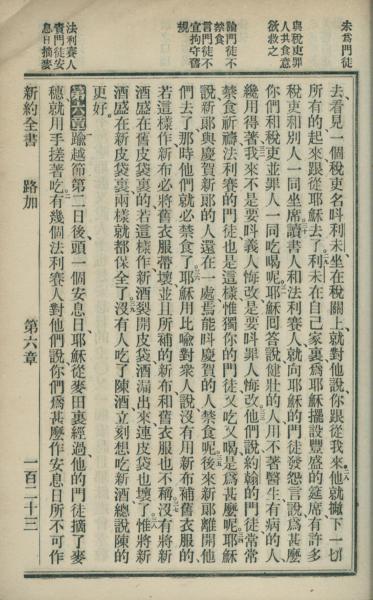 未為門徒
與稅吏罪
人共食意
欲救之
諭門徒不
禁食
言門徒不
宜拘守舊
規
法利賽人
責門徒安
息日摘麥
去看見一個稅吏名呌利未坐在稅關上就對他說你跟從我來他就撇下一切
所有的起來跟從耶穌去了利未在自己家裏為耶穌擺設豐盛的筵席有許多
稅吏和別人一同坐席讀書人和法利賽人就向耶穌的門徒發怨言說為甚麼
你們和稅吏並罪人一同吃喝呢耶穌回答說健壯的人用不著醫生有病的人
纔用得著我來不是要呌義人悔改是要呌罪人悔改他們說約翰的門徒常常
禁食祈禱法利賽的門徒也是這樣惟獨你的門徒又吃又喝是為甚麼呢耶穌
說新郎與慶賀新郎的人還在一處焉能呌慶賀的人禁食呢後來新郎離開他
們去了那時他們就必禁食了耶穌用比喻對眾人說沒有用新布補舊衣服的
若這樣作新布必將舊衣服帶壞並且所補的新布和舊衣服也不稱沒有將新
酒盛在舊皮袋裏的若這樣作新酒裂開皮袋酒漏出來連皮袋也壞了惟將新
酒盛在新皮袋裏兩樣就都保全了沒有人吃了陳酒立刻想吃新酒總說陳的
更好。
第六章 踰越節第二日後頭一個安息日耶穌從麥田裏經過他的門徒摘了麥
穗就用手搓著吃有幾個法利賽人對他們說你們為甚麼作安息日所不可作
新約全書 路加 第六章 一百二十三